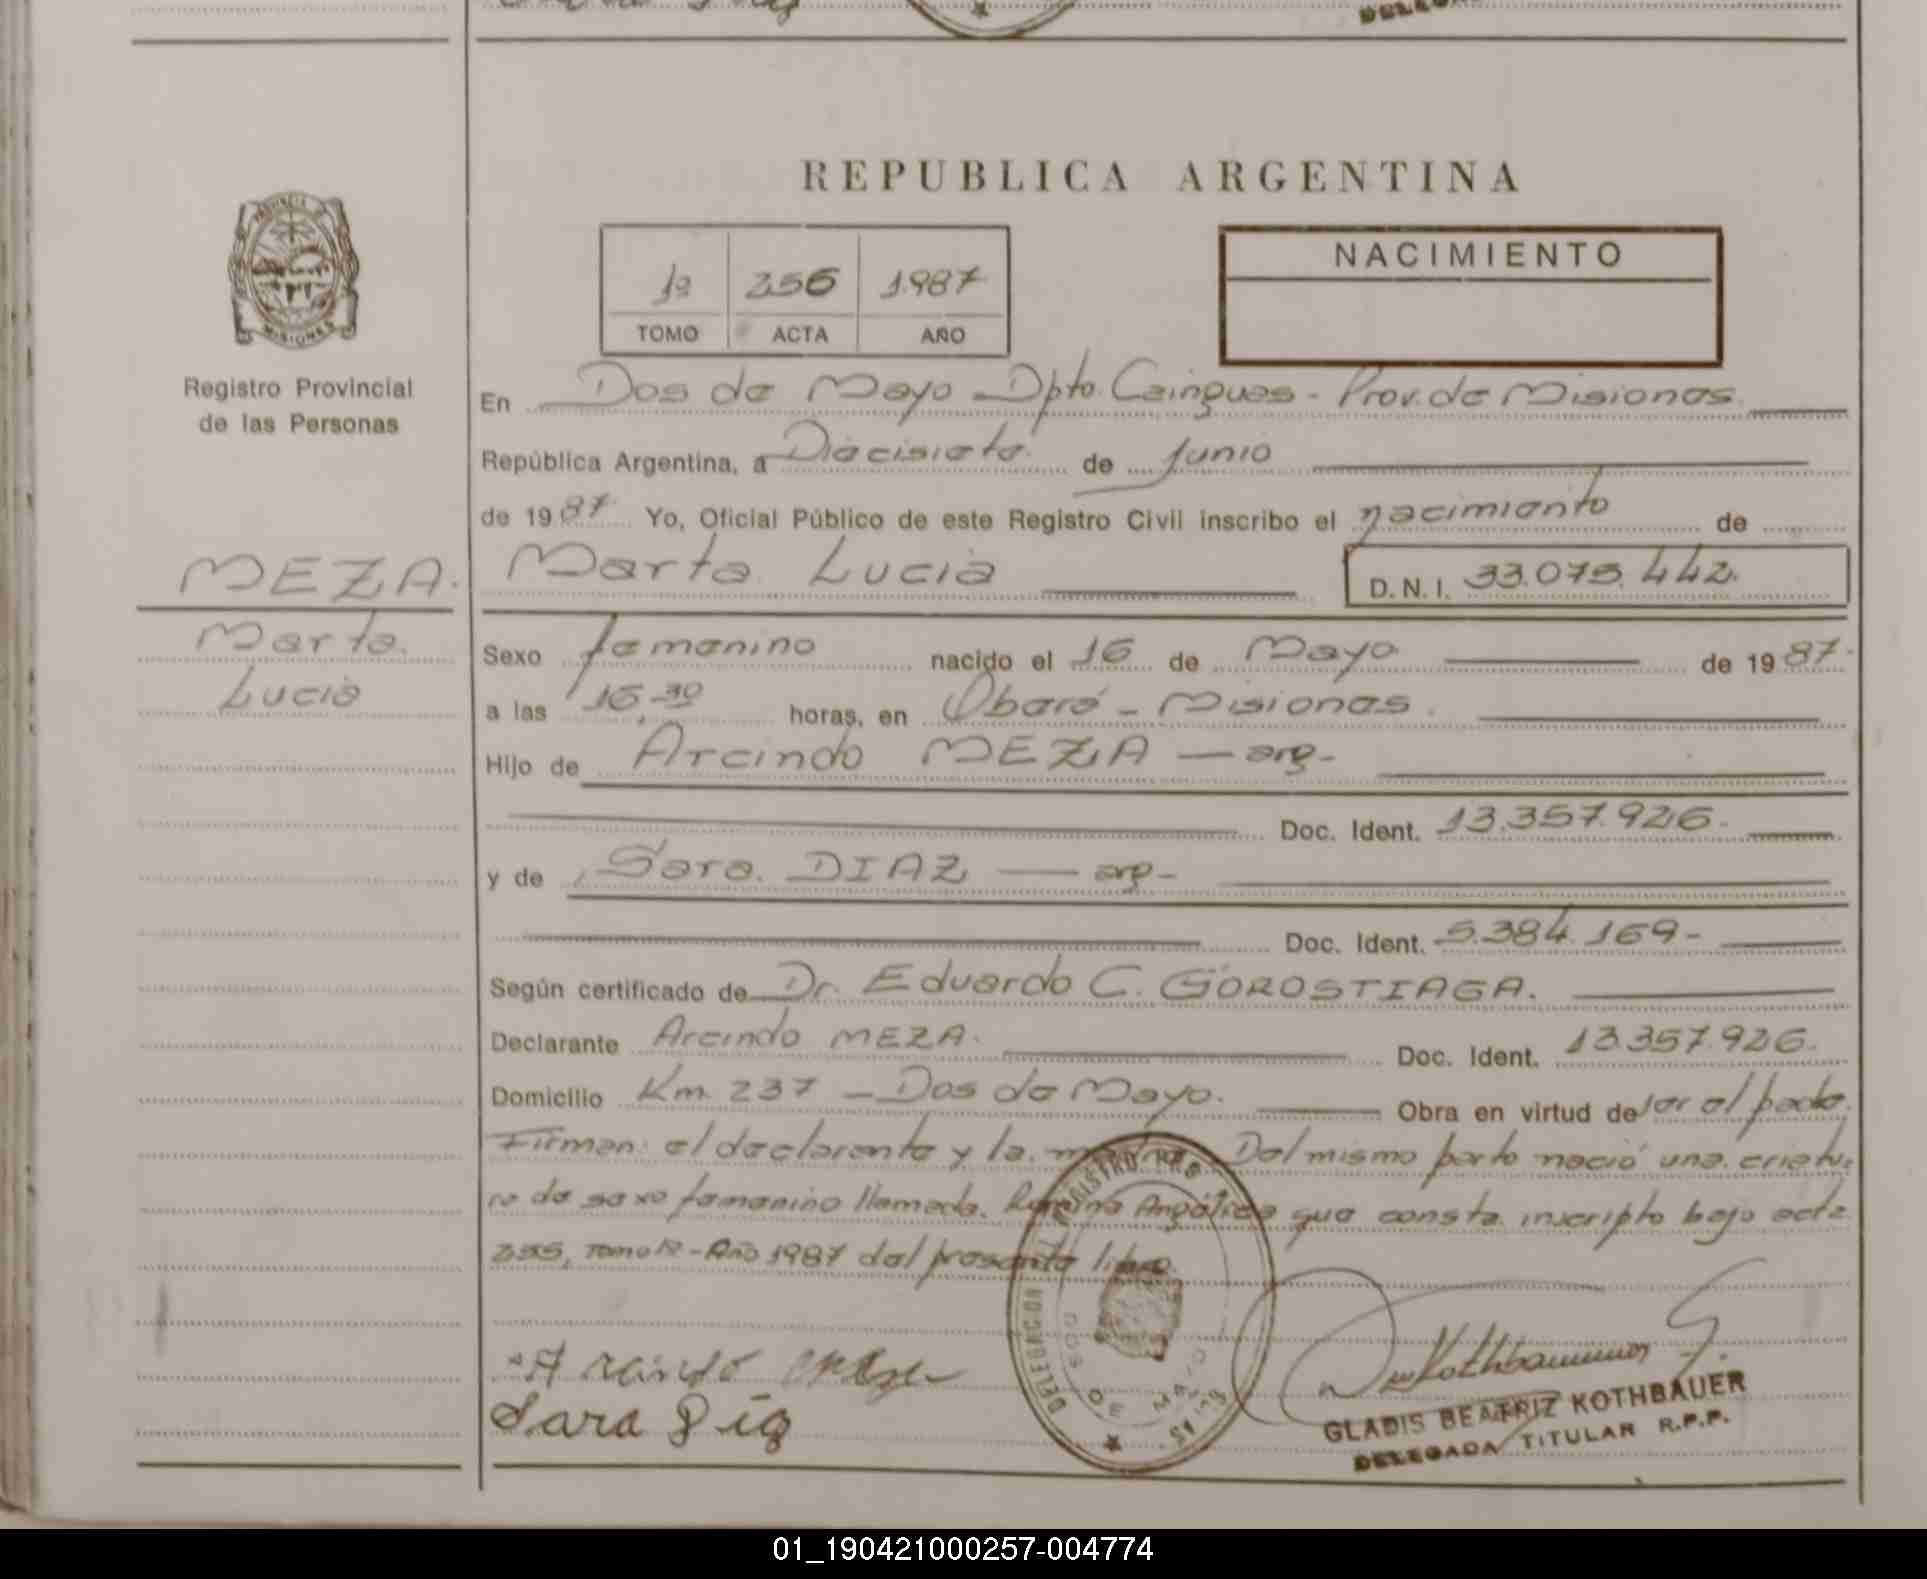 REPUBLICA ARGENTINA
PROVINCIA DE
MISIONES
Registro Provincial
de las Personas
1º 256 1987
TOMO ACTA AÑO
NACIMIENTO
En Dos de Mayo Dpto. Cainguas - Prov. de Misiones
República Argentina, a Diecisiete de Junio
de 1987 Yo, Oficial Público de este Registro Civil inscribo el nacimiento de
MEZA. Marta Lucia D.N.I. 33.075.442.
Marta
Lucia
Sexo femenino nacido el 16 de Mayo de 1987.
a las 16,30 horas, en Oberá - Misiones.
Hijo de Arcindo MEZA — arg-
Doc. Ident. 13.357.926-
y de Sara DIAZ — arg-
Doc. Ident. 5.384.169-
Según certificado de Dr. Eduardo C. GOROSTIAGA.
Declarante Arcindo MEZA. Doc. Ident. 13.357.926.
Domicilio Km. 237 - Dos de Mayo. Obra en virtud de ser el padre.
Firman: el declarante y la madre. Del mismo parto nació una criatu-
ra de sexo femenino llamada Angélica que consta inscripto bajo acta
255, Tomo 1º - Año 1987 del presente libro.
Sara Diaz
DELEGACION REGISTRO PRO
DOS DE MAYO
GLADIS BEATRIZ KOTHBAUER
DELEGADA TITULAR R.P.P.
01_190421000257-004774